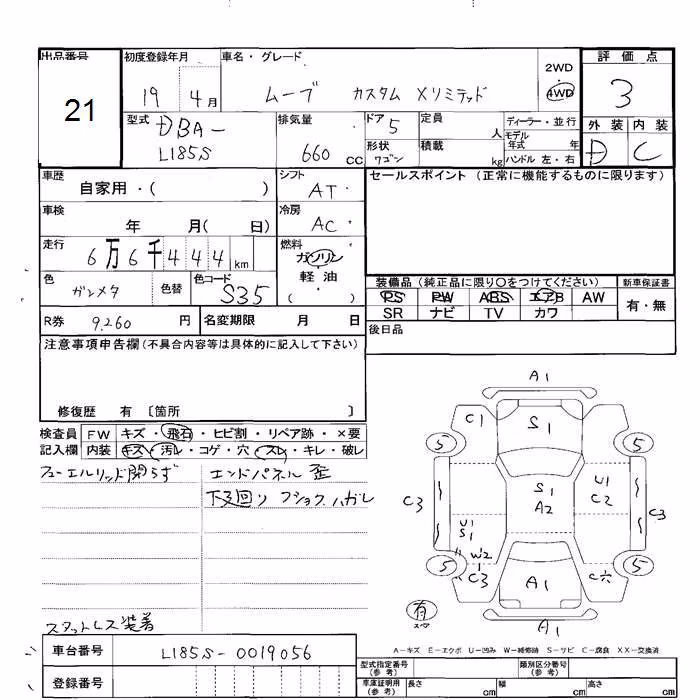 出品番号 初度登録年月 車名・グレード 評価点
21 19 4月 ムーブ カスタム Xリミテッド 2WD 4WD 3
型式 排気量 ドア 5 定員 人 ディーラー・並行 モデル年式 年 外装 内装
DBA- L185S 660cc 形状 ワゴン 積載 kg ハンドル 左・右 D C
車歴 シフト セールスポイント (正常に機能するものに限ります)
自家用・( ) AT
車検 冷房
年 月( 日) AC
走行 燃料
6万6千444km ガソリン
色 色替 色コード 軽油
ガンメタ S35 ( )
装備品 (純正品に限り○をつけてください) 新車保証書
PS PW ABS エアB AW 有・無
SR ナビ TV カワ
R券 9,260円 名変期限 月 日
後日品
注意事項申告欄(不具合内容等は具体的に記入して下さい)
修復歴 有 〔箇所 〕
検査員 FW キズ・飛石・ヒビ割・リペア跡・×要
記入欄 内装 キズ・汚レ・コゲ・穴・スレ・キレ・破レ
フューエルリッド開らず エンドパネル歪
下廻り フショク ハガレ
スタットレス装着
A1
C1 S1
5 5
C3 S1 A2 U1 C2 C3
U1 S1
W2 C3
5 5
A1 C穴
有 スペア
A1
A-キズ E-エクボ U-凹み W-補修跡 S-サビ C-腐食 XX-交換済
車台番号 L185S-0019056
登録番号
型式指定番号(参考) 類別区分番号(参考)
車庫証明用(参考) 長さ cm 幅 cm 高さ cm